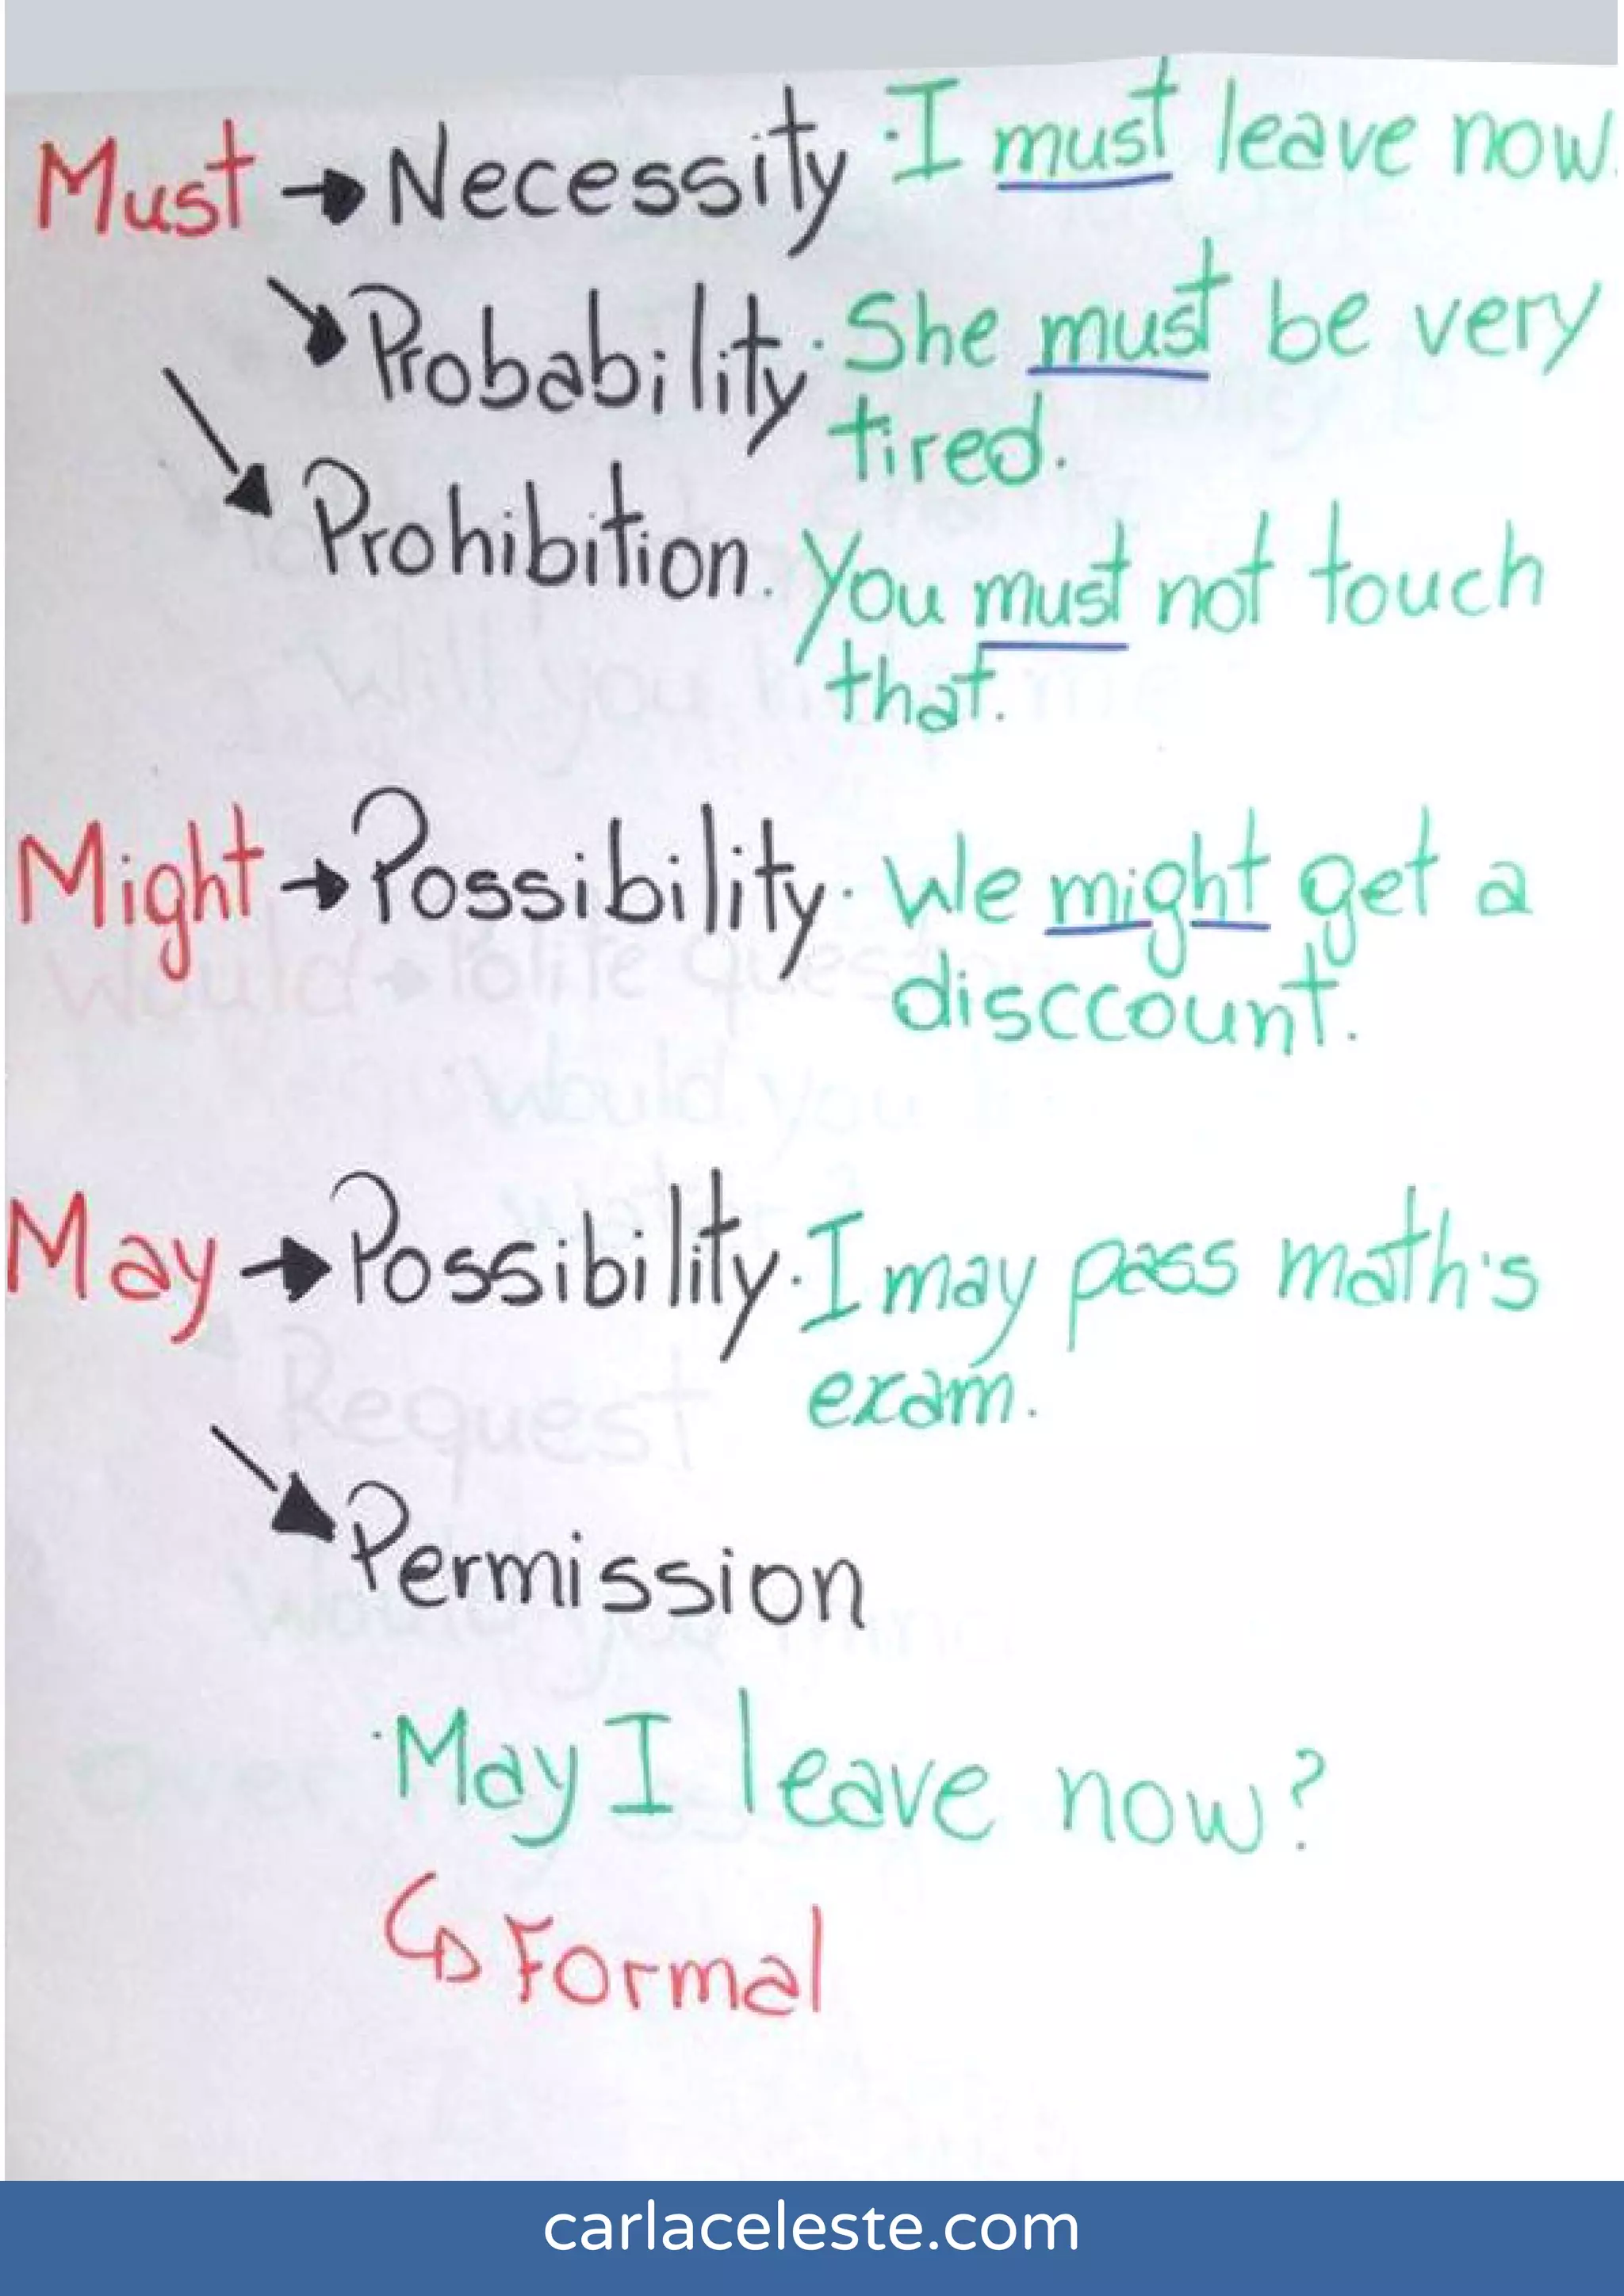 Must → Necessity · I must leave now.
Probability · She must be very
tired.
Prohibition. You must not touch
that.
Might → Possibility · We might get a
disccount.
May → Possibility · I may pass math's
exam.
Permission
· May I leave now?
↳ Formal
carlaceleste.com